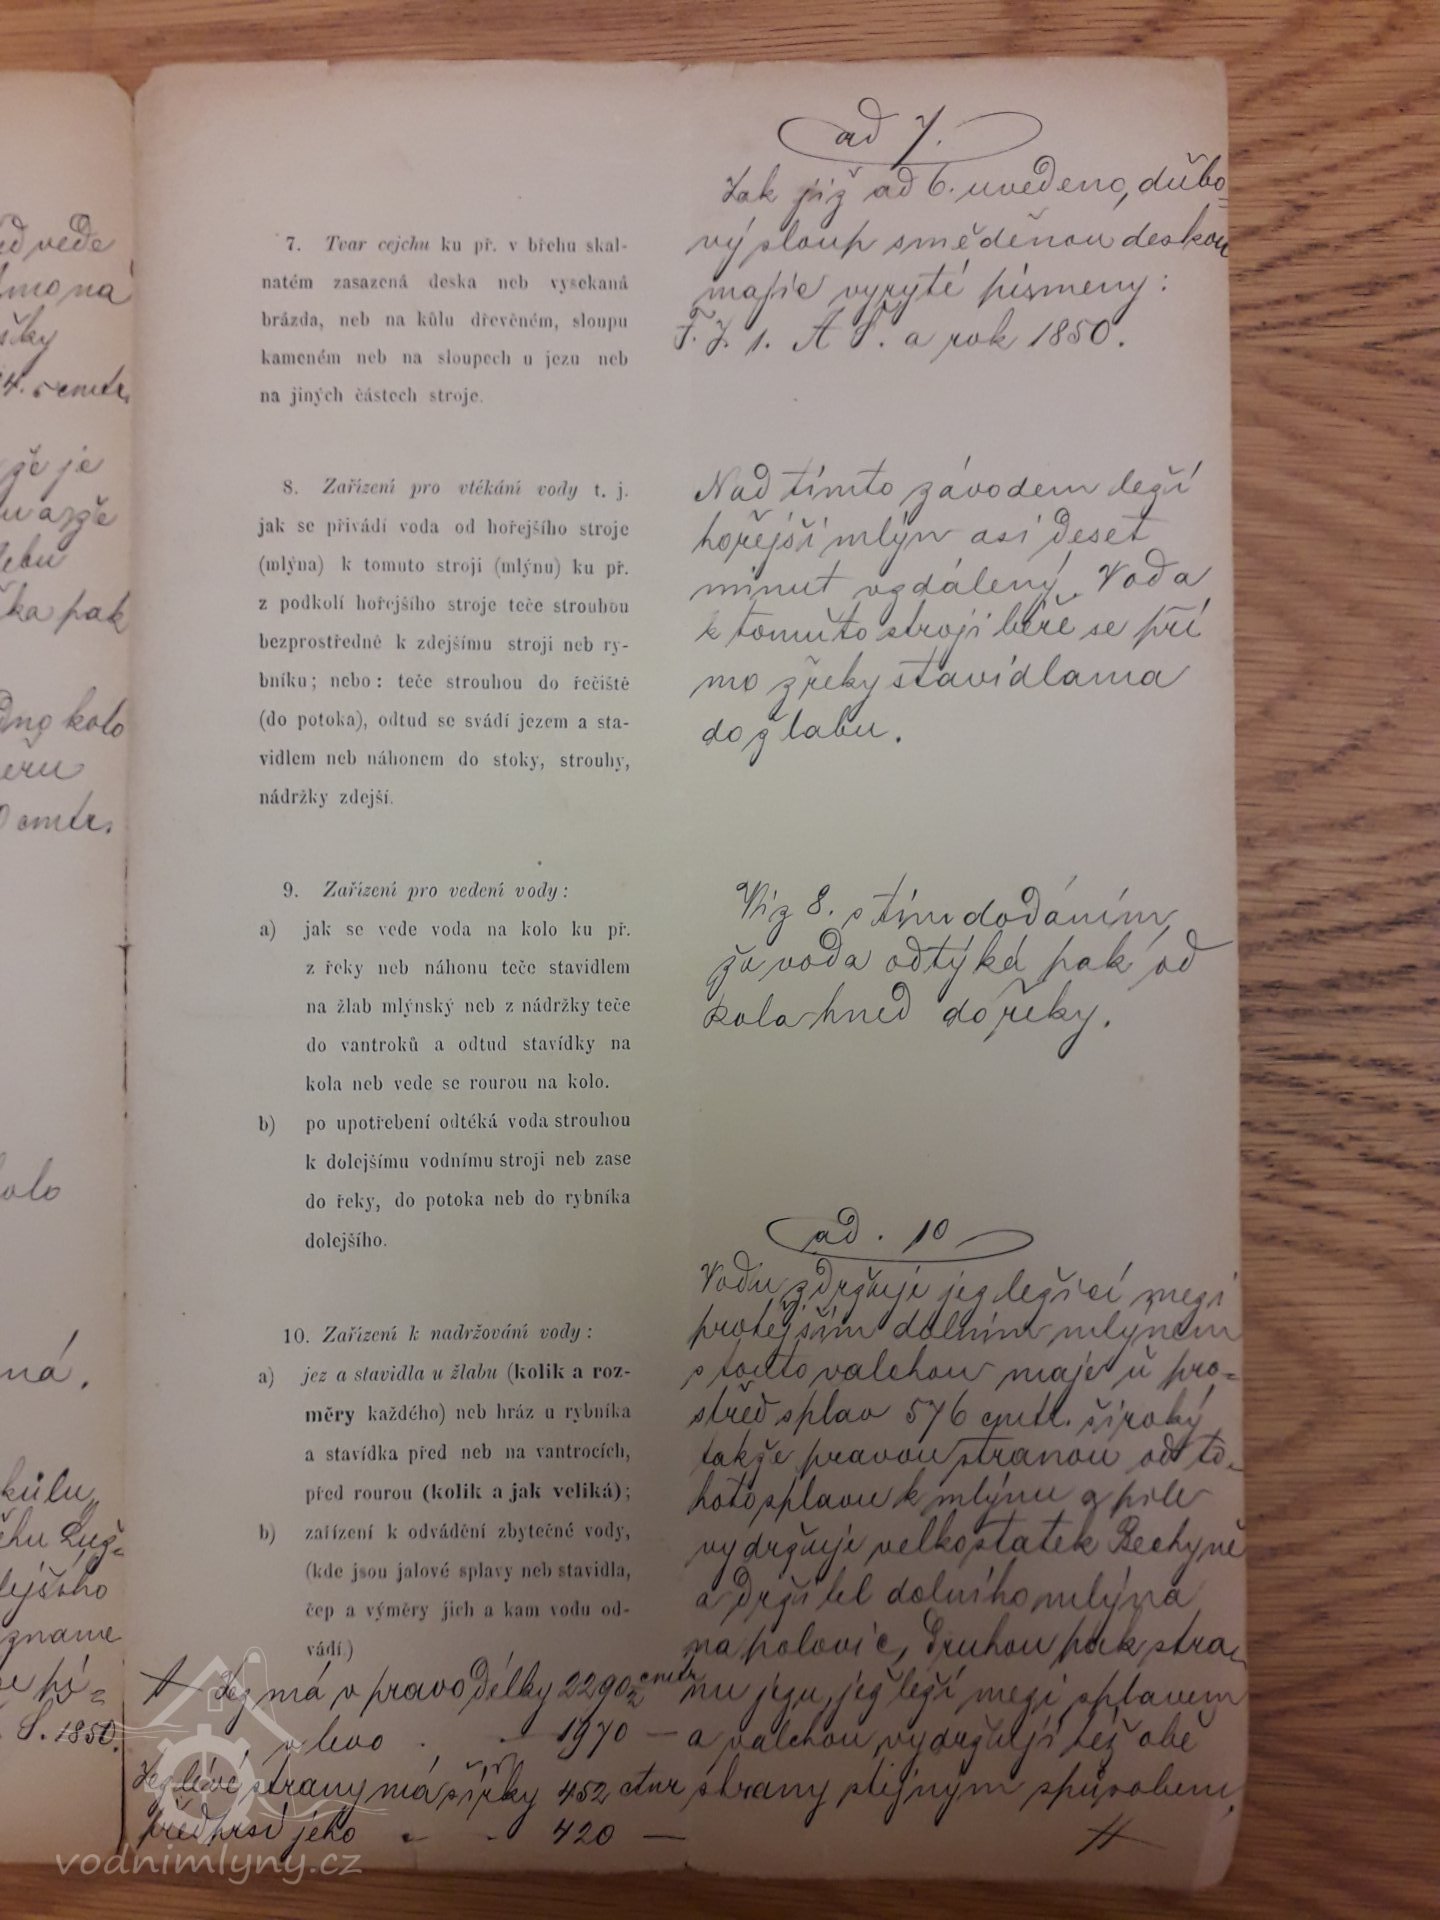 ed vede
šky
4.5 cmtr.
že je
ka pak
dno kolo
0 cmtr.
olo
ná.
kůlu
lejšího
zname
S. 1850.
7. Tvar cejchu ku př. v břehu skal-
natém zasazená deska neb vysekaná
brázda, neb na kůlu dřevěném, sloupu
kameném neb na sloupech u jezu neb
na jiných částech stroje.
ad 7.
Jak již ad 6. uvedeno, dubo-
vý sloup s měděnou deskou
maje vyryté písmeny:
F. J. 1. A S. a rok 1850.
8. Zařízení pro vtékání vody t. j.
jak se přivádí voda od hořejšího stroje
(mlýna) k tomuto stroji (mlýnu) ku př.
z podkolí hořejšího stroje teče strouhou
bezprostředně k zdejšímu stroji neb ry-
bníku; nebo: teče strouhou do řečiště
(do potoka), odtud se svádí jezem a sta-
vidlem neb náhonem do stoky, strouhy,
nádržky zdejší.
Nad tímto závodem leží
hořejší mlýn asi deset
minut vzdálený. Voda
k tomuto stroji béře se pří
mo z řeky stavidlama
do žlabu.
9. Zařízení pro vedení vody:
a) jak se vede voda na kolo ku př.
z řeky neb náhonu teče stavidlem
na žlab mlýnský neb z nádržky teče
do vantroků a odtud stavídky na
kola neb vede se rourou na kolo.
b) po upotřebení odtéká voda strouhou
k dolejšímu vodnímu stroji neb zase
do řeky, do potoka neb do rybníka
dolejšího.
Viz 8. s tím dodáním,
že voda odtýká pak od
kola hned do řeky.
10. Zařízení k nadržování vody:
a) jez a stavidla u žlabu (kolik a roz-
měry každého) neb hráz u rybníka
a stavídka před neb na vantrocích,
před rourou (kolik a jak veliká);
b) zařízení k odvádění zbytečné vody,
(kde jsou jalové splavy neb stavidla,
čep a výměry jich a kam vodu od-
vádí.)
ad. 10
Vodu zdržuje jez ležící mezi
protějším dolním mlýnem
s touto valchou maje u pro-
střed splav 576 cmtr. široký
takže pravou stranou od to-
hoto splavu k mlýnu a pile
vydržuje velkostatek Bechyně
a držitel dolního mlýna
na polovic, druhou pak stra-
nu jezu, jež leží mezi splavem
a valchou, vydržují též obě
strany stejným spůsobem.
Jez má v pravo délky 2290 cmtr
v levo - 1970 —
Jez levé strany má šířky 452 ctmr
předprsí jeho - - 420 —
vodnimlyny.cz